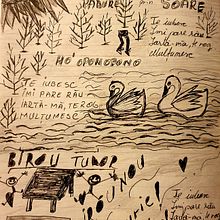 PĂDURE
SOARE
Te iubesc
Îmi pare rău
Iartă-mă, te rog
Multumesc
HO'OPONOPONO
TE IUBESC
ÎMI PARE RĂU
IARTĂ-MĂ, TE ROG
MULTUMESC
BIROU TUDOR
NOU
Te iubesc
Îmi pare rău
Iartă-mă, te rog